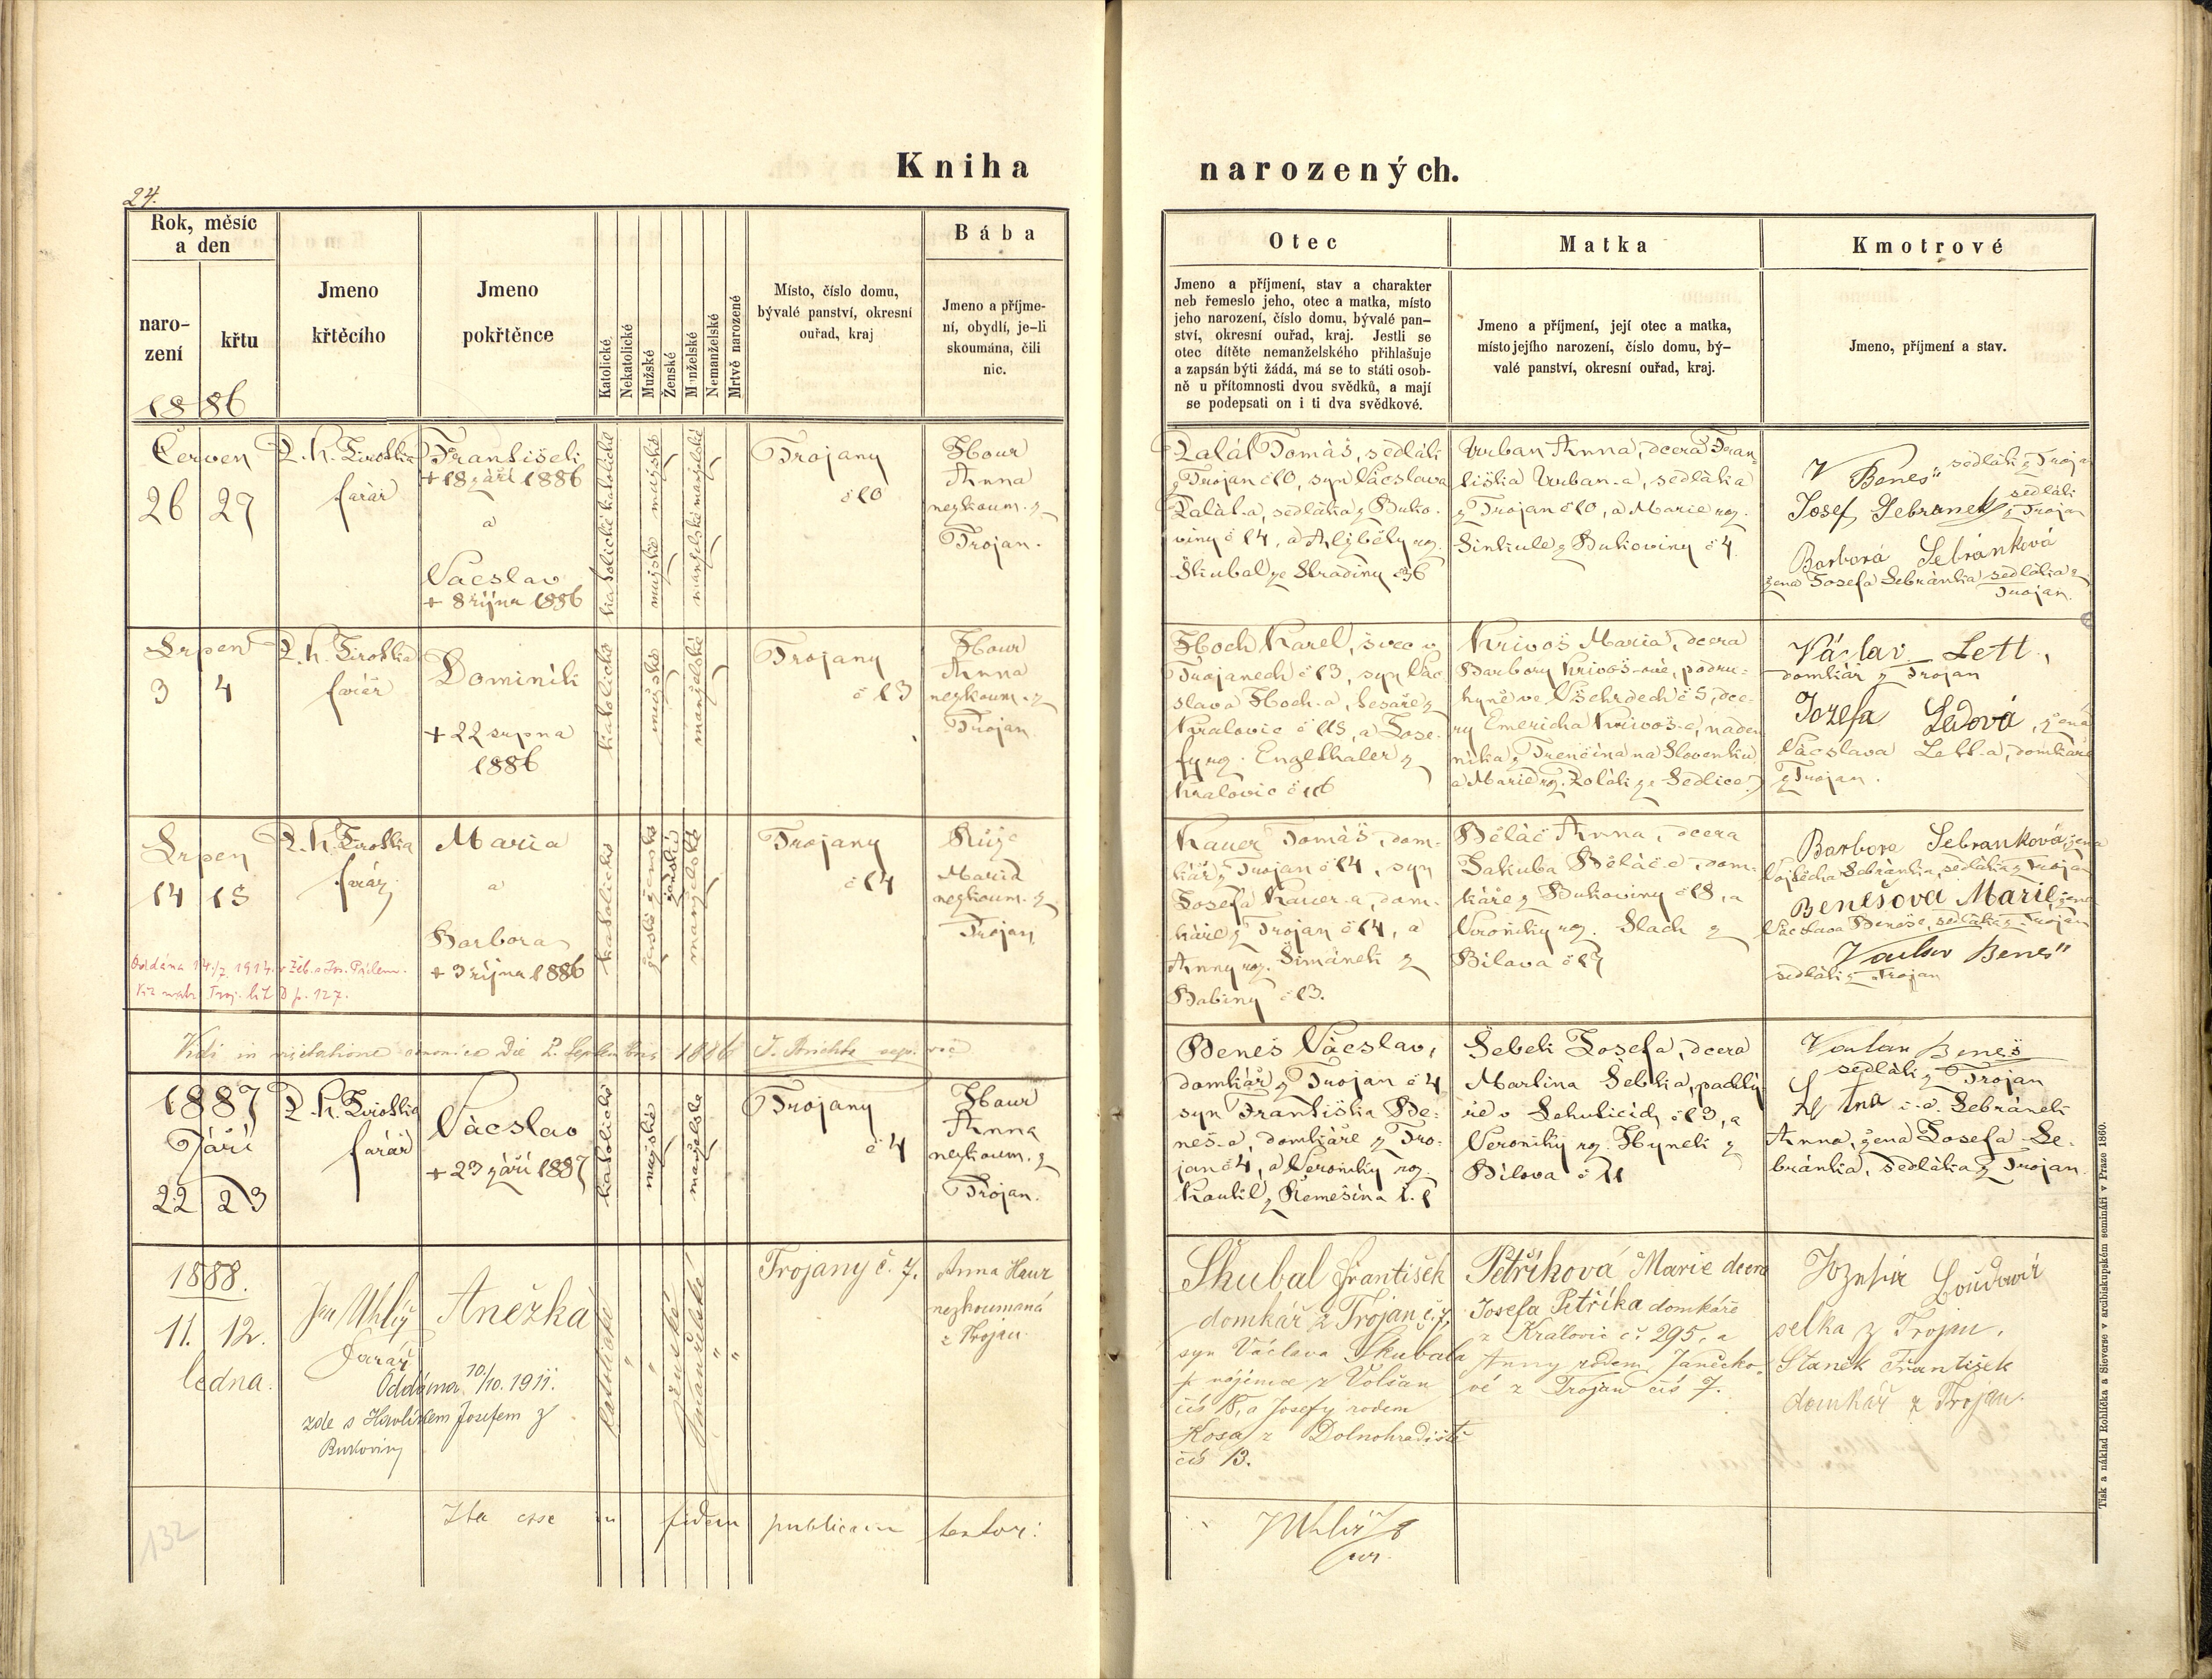 Kniha
narozených.
24.
Rok, měsíc
a den
naro-
zení
křtu
1886
Jmeno
křtěcího
Jmeno
pokřtěnce
Katolické
Nekatolické
Mužské
Ženské
Manželské
Nemanželské
Mrtvě narozené
Místo, číslo domu,
bývalé panství, okresní
ouřad, kraj
Bába
Jmeno a příjme-
ní, obydlí, je-li
skoumána, čili
nic.
Otec
Jmeno a příjmení, stav a charakter
neb řemeslo jeho, otec a matka, místo
jeho narození, číslo domu, bývalé pan-
ství, okresní ouřad, kraj. Jestli se
otec dítěte nemanželského přihlašuje
a zapsán býti žádá, má se to státi osob-
ně u přítomnosti dvou svědků, a mají
se podepsati on i ti dva svědkové.
Matka
Jmeno a příjmení, její otec a matka,
místo jejího narození, číslo domu, bý-
valé panství, okresní ouřad, kraj.
Kmotrové
Jmeno, příjmení a stav.
Červen
26 27
farář
František
+ 18 září 1886
a
Vácslav
+ 8 října 1886
katolické katolické
mužské mužské
manželské manželské
Trojany
č 10
Hour
Anna
nezkoum. z
Trojan.
Zalál Tomáš, sedlák
z Trojan č 10, syn Vácslava
Zalál-a, sedláka z Buko-
viny č 14, a Alžběty roz.
Škubal ze Stradiny č 36
Vrban Anna, dcera Fran-
tiška Vrban-a, sedláka
z Trojan č 10, a Marie roz.
Sinkule z Bukoviny č 4.
V Beneš sedlák z Trojan
Josef Sebranek sedlák
z Trojan
Barbora Sebránková
žena Josefa Sebránka sedláka z
Trojan.
Srpen
3 4
farář
Dominik
+ 22 srpna
1886
katolické
mužské
manželské
Trojany
č 13
Hour
Anna
nezkoum. z
Trojan
Hoch Karel, švec v
Trojanech č 13, syn Vác
slava Hoch-a, tesaře z
Kralovic č 115, a Jose-
fy roz. Engelthaler z
Kralovic č 116
Krivoš Maria, dcera
Barbory Krivoš-ové, podru-
hyně ve Všehrdech č 5, dce-
ry Emericha Krivoš-e, naden
níka z Trenčína na Slovensku,
a Marie roz. Zolák ze Sedlice.)
Václav Lett,
domkář z Trojan
Jozefa Ledová, žena
Vácslava Lett-a, domkáře
z Trojan.
Srpen
14 15
farář
Maria
a
Barbora
+ 3 října 1886
katolické
ženské ženské
manželské
Trojany
č 14
Růže
Maria
nezkoum. z
Trojan
Kauer Tomáš, dom-
kář z Trojan č 14, syn
Josefa Kauer-a, dom-
káře z Trojan č 14, a
Anny roz. Šimánek z
Babiny č 13.
Běláč Anna, dcera
Jakuba Běláč-e, dom-
káře z Bukoviny č 18, a
Veroniky roz. Slach z
Bílova č 17
Barbora Sebranková, žena
Vojtěcha Sebránka, sedláka z Trojan
Benešova Marie žena
Vácslava Beneše, sedláka z Trojan
Vaclav Beneš
sedlák z Trojan
Vidi in visitatione canonica die 2. Septembris 1886
1887
Září
22 23
farář
Vácslav
+ 23 září 1887
katolické
mužské
manželské
Trojany
č 4
Hour
Anna
nezkoum. z
Trojan.
Beneš Vácslav,
domkář z Trojan č 4
syn Františka Be-
neš-a, domkáře z Tro-
jan č 4, a Veroniky roz.
Koutil z Řemešína č. 1
Šebek Josefa, dcera
Martina Šebka, pachtý
ře v Sehulicích č 13, a
Veroniky roz. Hynek z
Bílova č 11
Vaclav Beneš
sedlák z Trojan
Anna, žena Josefa Se-
bránka, sedláka z Trojan.
1888.
11. 12.
ledna.
Jan Uhlíř
farář
Anežka
Oddána 10/10. 1911.
zde s Havlíkem Josefem z
Bukoviny
katolické
ženské
manželské
Trojany č. 7.
Anna Haur
nezkoumaná
z Trojan.
Škubal František
domkář z Trojan č. 7,
syn Václava Škubala
nájemce z Volšan
čís 18, a Josefy rodem
Kosa z Dolnohradiště
čís 13.
Petříková Marie dcera
Josefa Petříka domkáře
z Královic č. 295, a
Anny rodem Janečko-
vé z Trojan čís 7.
Jozefa Loudová
selka z Trojan.
Staněk František
domkář z Trojan.
132
Ita esse in fidem publicam testor:
J Uhlíř
Tisk a náklad Rohlíčka a Sieverse v arcibiskupském semináři v Praze 1860.